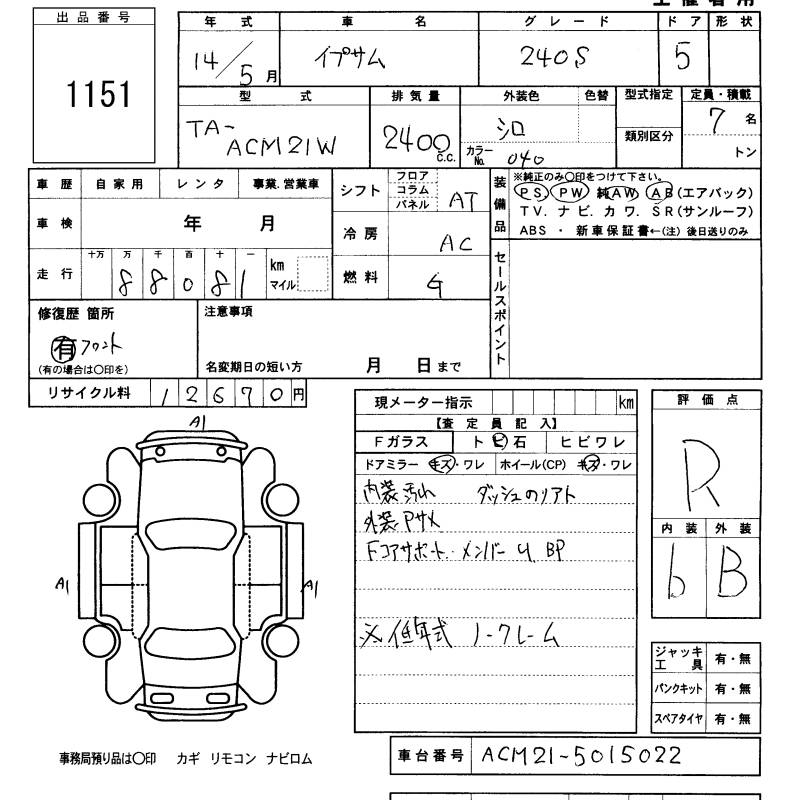 出品番号
1151
年式 車名 グレード ドア 形状
14/5月 イプサム 240S 5
型式 排気量 外装色 色替 型式指定 定員・積載
TA-ACM21W 2400c.c. シロ カラーNo. 040 類別区分 7名 トン
車歴 自家用 レンタ 事業.営業車 シフト フロア コラム パネル AT
車検 年 月 冷房 AC
走行 十万 万 千 百 十 一 km マイル 燃料 G
88081
装備品 ※純正のみ〇印をつけて下さい。
PS PW 純AW AB(エアバック)
TV. ナビ. カワ. SR(サンルーフ)
ABS ・ 新車保証書←(注) 後日送りのみ
セールスポイント
修復歴 箇所 注意事項
有 フロント
(有の場合は〇印を) 名変期日の短い方 月 日まで
リサイクル料 12670円
現メーター指示 km
【査定員記入】
Fガラス トビ石 ヒビワレ
ドアミラー キズ・ワレ ホイール(CP) キズ・ワレ
内装汚れ ダッシュのリアト
外装Pサメ
Fコアサポート. メンバー U BP
※低年式 ノークレーム
評価点
R
内装 外装
b B
A1
A1 A1
ジャッキ工具 有・無
パンクキット 有・無
スペアタイヤ 有・無
事務局預り品は〇印 カギ リモコン ナビロム
車台番号 ACM21-5015022